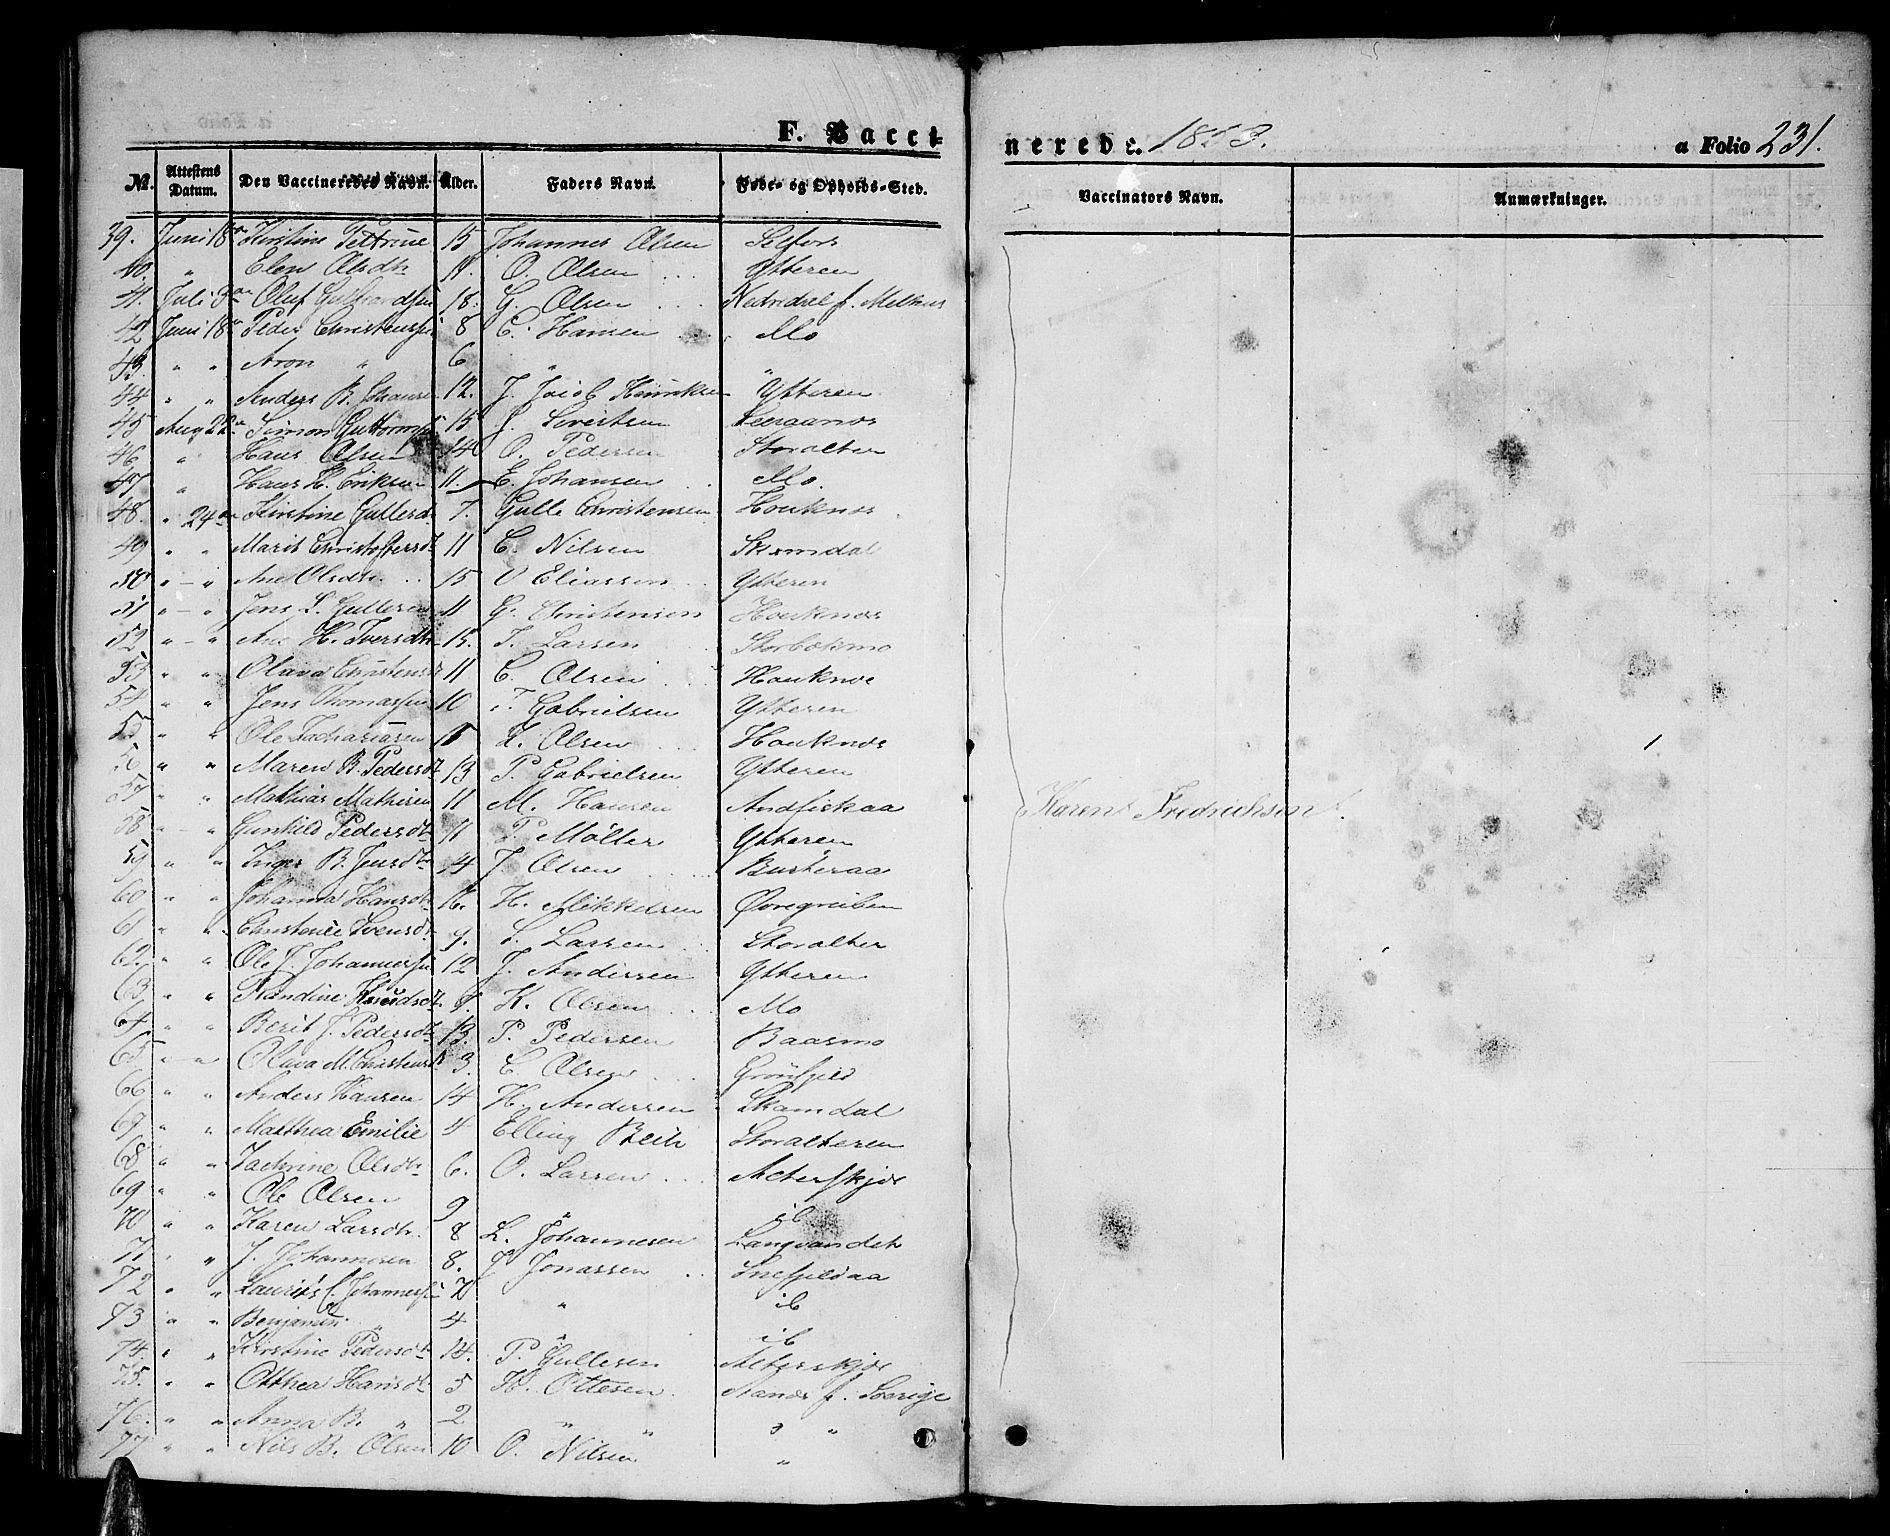 F. Vacci-
nerede. 1853.
a Folio 231.
№. Attestens Datum. Den Vaccineredes Navn. Alder. Faders Navn. Føde- og Opholds-Sted. Vaccinators Navn. Anmærkninger.
39. Juni 18de Kirstine Pettrine 15 Johannes Olsen Selfors
40. " Elen Olsdtr 11. O. Olsen Ytteren
41. Juli 3de Oluf 18. G. Olsen f. Melhus
42 Juni 18de Peder Christenssen 8 C. Hansen Mo
43. " " Aron " 6 " "
44 " " Anders B. Johansen 12. J. Jacob Henriksen Ytteren
45 Aug 22de Simon Guttormsen 15 J. Sivertsen
46 " Hans Olsen 14 O. Pedersen Storalteren
47 " Hans H. Eriksen 11. E. Johansen Mo.
48. " 24de Kirstine Gullesdtr 7. Gulle Christensen Houknes
49 " " Marit Christoffersdtr 11 C. Nilsen Skamdal
50 " " Ane Olsdtr 15 O Eliassen Ytteren
51 " " Jens L. Gullesen 11 G. Christensen Houknes
52 " " Ane H. Iversdtr 15. I. Larsen Storbækmo
53 " " Olava Christensdtr 11 C. Olsen Houknes
54 " " Jens Thomassen 10 T. Gabrielsen Ytteren
55 " " Ole Zachariasen Z. Olsen Houknes
56 " " Maren B. Pedersdt 13 P. Gabrielsen Ytteren
57 " " Mathias Mathisen 11 M. Hansen Andfiskaa Karen Fredrichsen.
58 " " Gunhild Pedersdtr 11 P. Møller Ytteren
59 " " Inger B. Jensdtr 14 J Olsen Busteraa
60 " " Johanna Hansdtr 16. H. Mikkelsen Øvregruben
61 " " Christense Svensdtr 9. S. Larsen Storalter
62. " " Ole J. Johannessen 12 J. Andersen Ytteren
63 " " Randine Knudsdt. K. Olsen Mo
64 " " Berit J. Pedersdt 13. P. Pedersen Baasmo
65 " " Olava M. Christensdt 3. C Olsen Grönfjeld
66 " " Anders Hansen 14 H. Andersen Skamdal
67 " " Matthea Emilie 4 Elling Storalteren
68 " " Zachrine Olsdtr 6. O. Larsen
69 " " Ole Olsen 9 " ib
70 " " Karen Larsdtr. 8 L. Johannesen Langvandet
71 " " J. Johannesen 8. J Jonassen Snefjeldaa
72 " " Laurits C. Johannessen " ib
73 " " Benjamin " 4 " ib
74. " " Kirstine Pedersdt 14. P. Gullesen
75. " " Otthea Hansdtr 5 H. Ottesen f. Sverige
76. " " Anna B. " 2 " " " "
77 " " Nils B. Olsen 10 O. Nilsen "